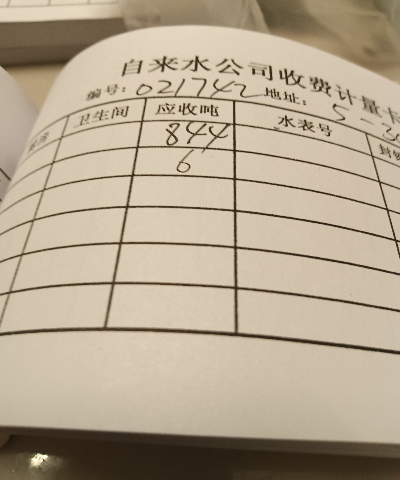 自来水公司收费计量卡
编号: 021742 地址: 5-30
卫生间 应收吨 水表号 封
844
6